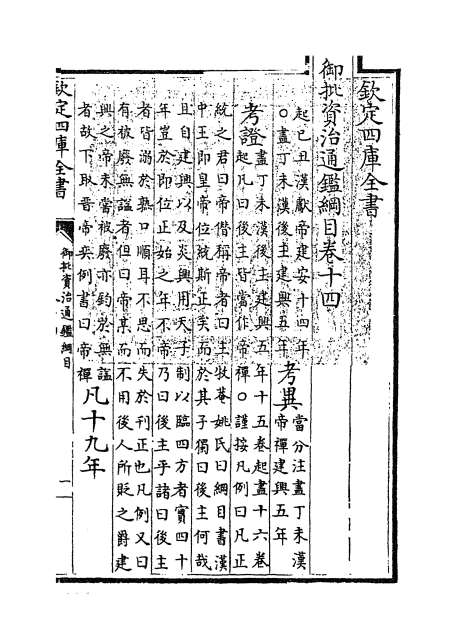 欽定四庫全書
御批資治通鑑綱目卷十四
起己丑漢獻帝建安十四年
○盡丁未漢後主建興五年
考異
當分注盡丁未漢
帝禪建興五年
考證
盡丁未漢後主建興五年十五卷起盡十六卷
起凡曰後主皆當作帝禪○謹按凡例曰凡正
統之君曰帝僭稱帝者曰主牧菴姚氏曰綱目書漢
中王即皇帝位統斯正矣而於其子獨曰後主何哉
且自建興以及炎興用天子制以臨四方者實四十
年豈於即位正始之年不帝乃曰後主乎諸曰後主
者皆溺於熟口順耳不思而失於刊正也凡例又曰
有被廢無諡者但曰帝某而不用後人所貶之爵建
興之帝未嘗被廢亦鈞於無諡
者故下取晉帝奕例書曰帝禪
凡十九年
欽定四庫全書
御批資治通鑑綱目
一